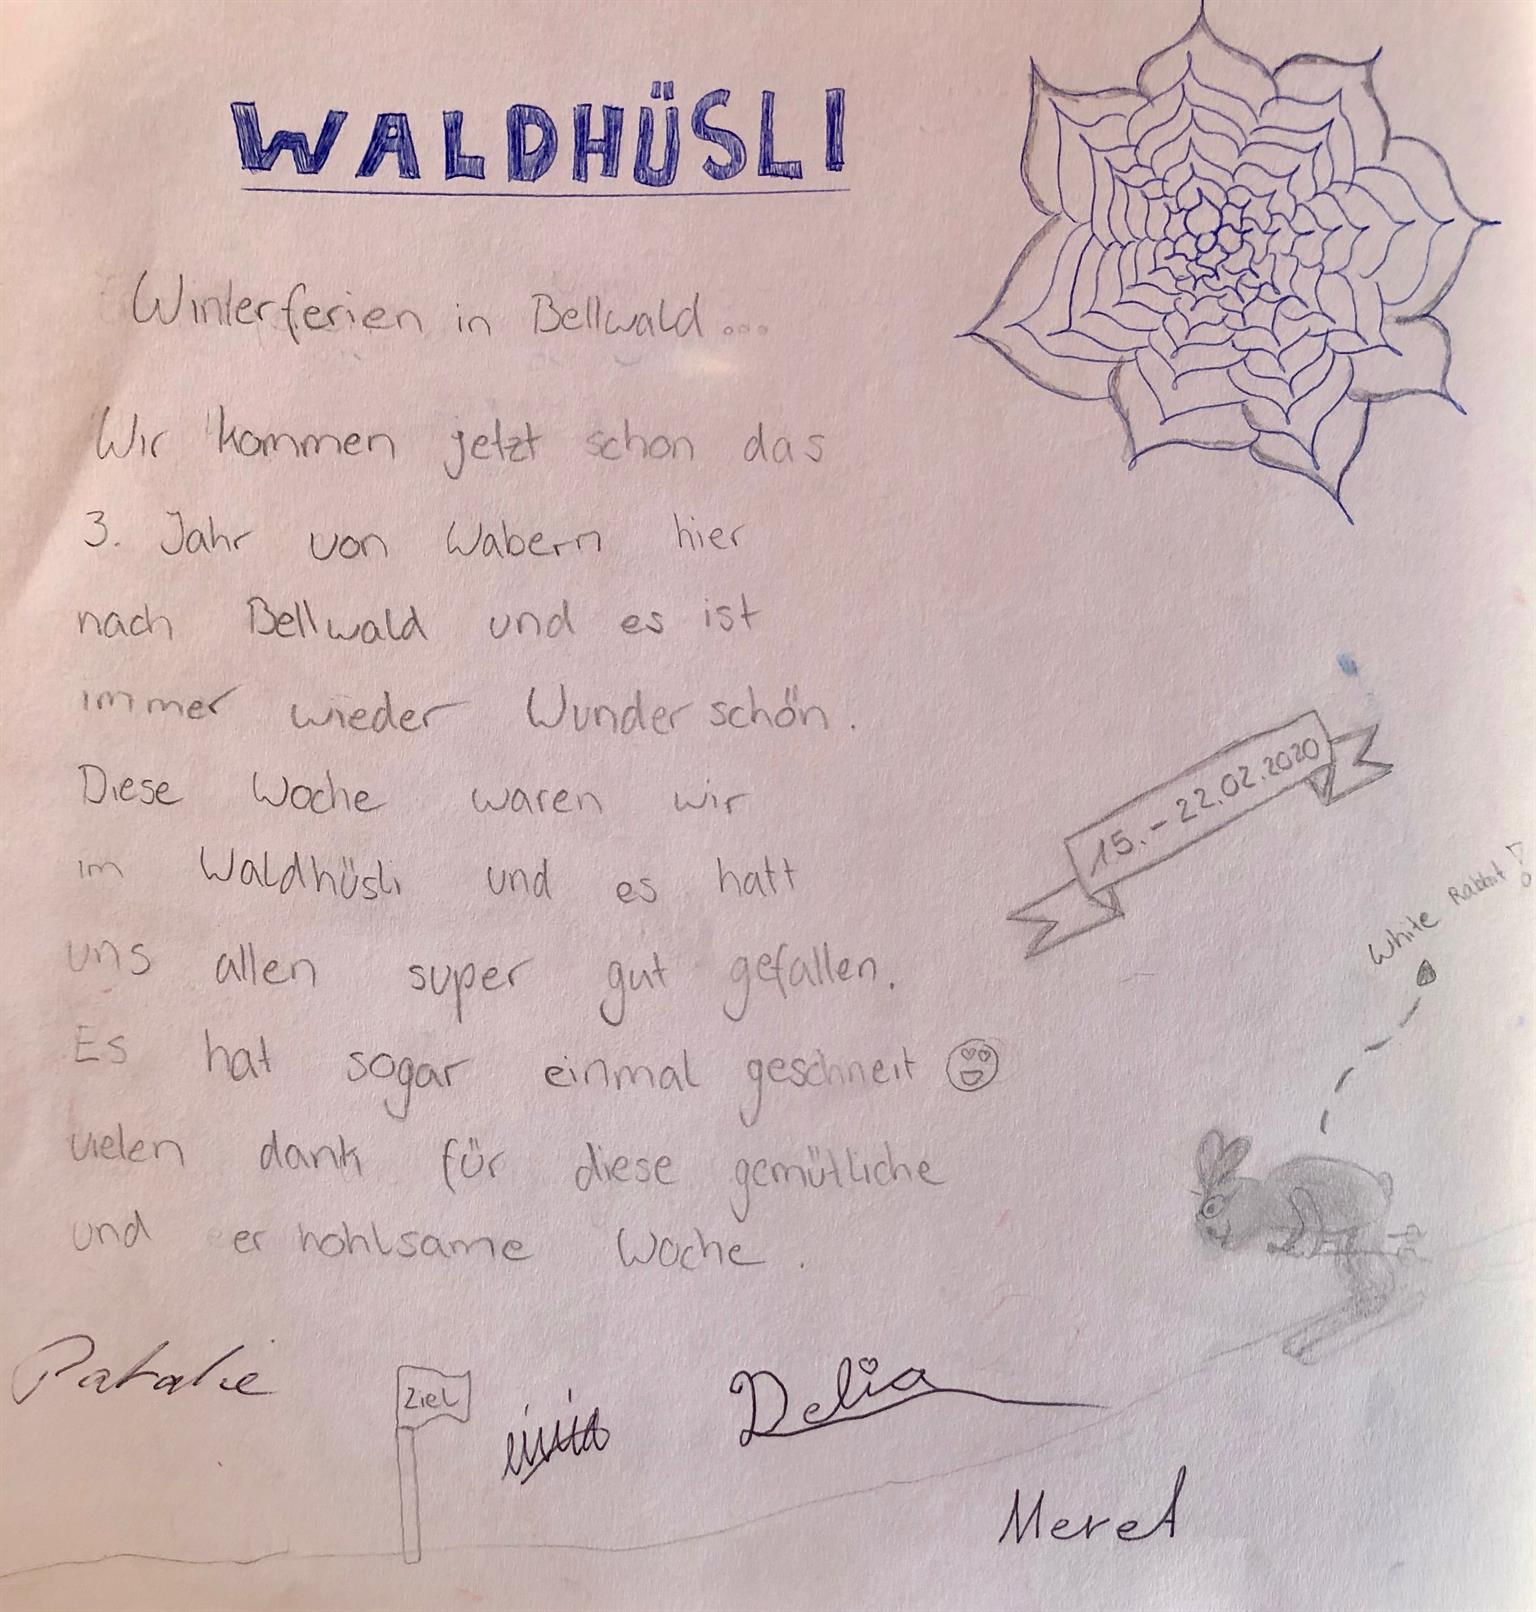 WALDHÜSLI
Winterferien in Bellwald...
Wir kommen jetzt schon das
3. Jahr von Wabern hier
nach Bellwald und es ist
immer wieder Wunderschön.
Diese Woche waren wir
im Waldhüsli und es hatt
uns allen super gut gefallen.
Es hat sogar einmal geschneit
vielen dank für diese gemütliche
und erhohlsame Woche.
15.-22.02.2020
White Rabbit!
Ziel
Delia
Meret